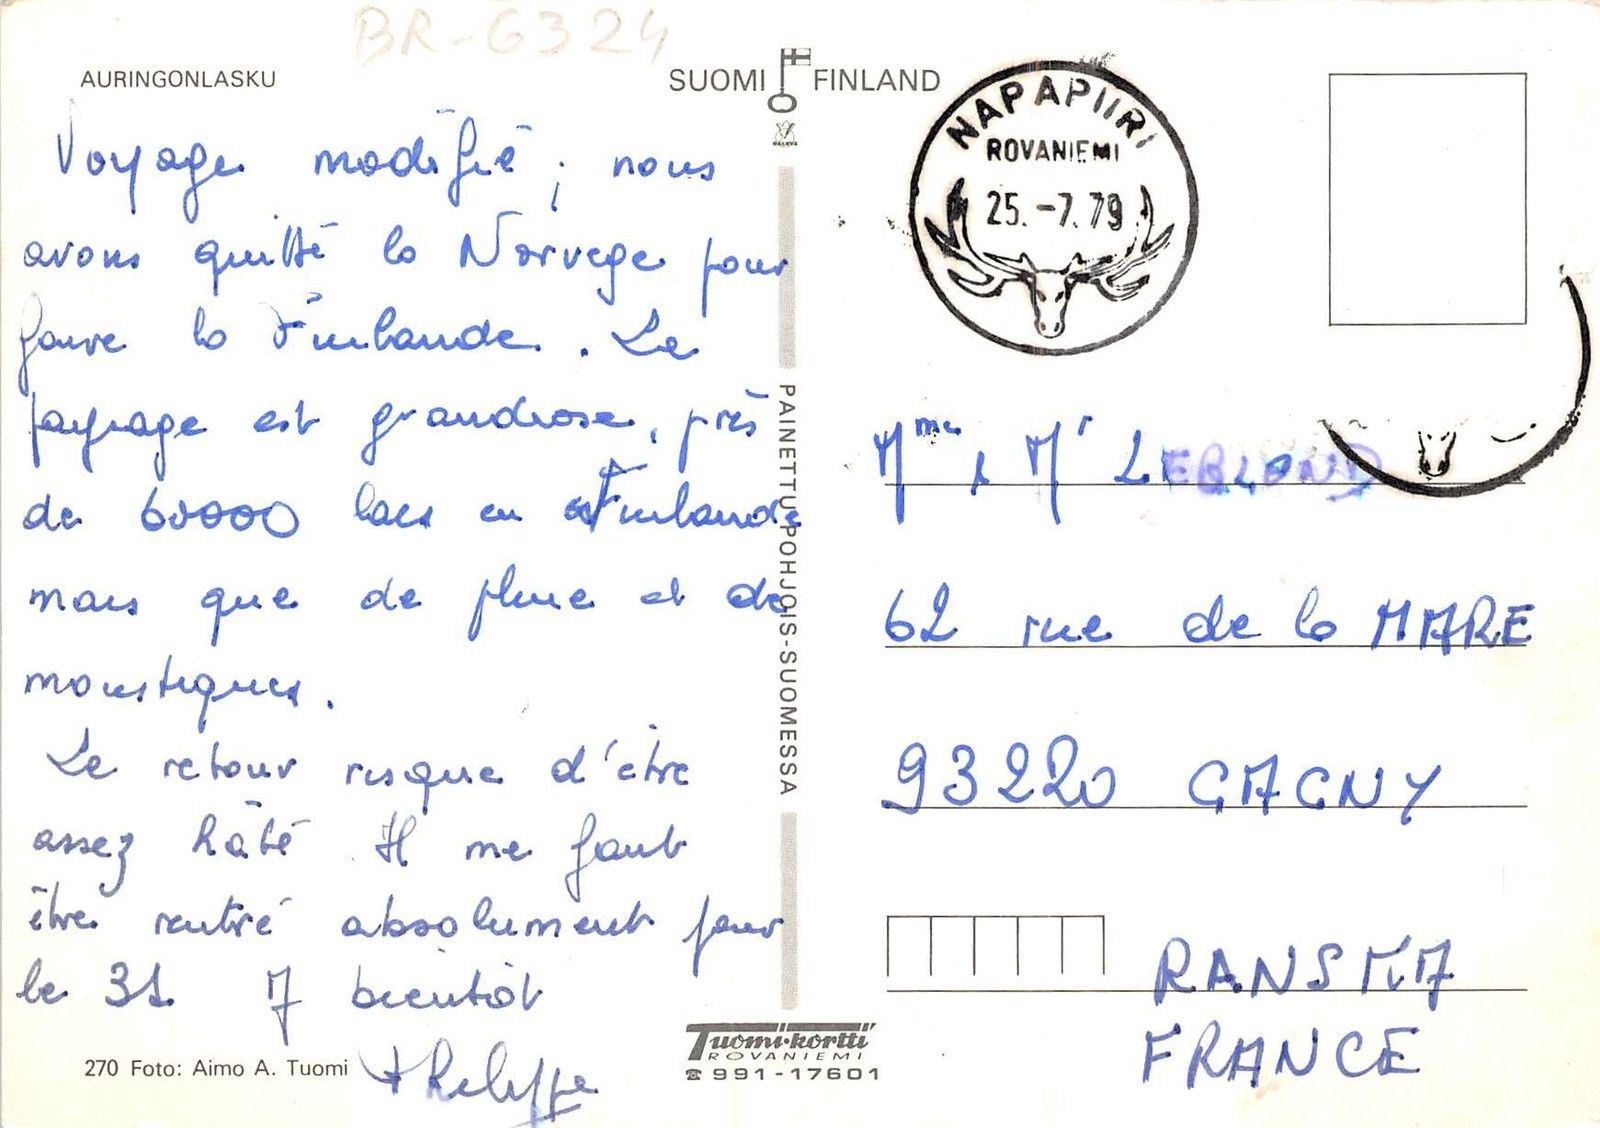 BR-6324
AURINGONLASKU
SUOMI FINLAND
Voyage modifié ; nous
avons quitté la Norvege pour
faire la Finlande. Le
paysage est grandiose, près
de 60000 lacs en Finlande
mais que de pluie et de
moustiques.
Le retour risque d'être
assez hâté. Il me faut
être rentré absolument pour
le 31 A bientôt
Philippe
270 Foto: Aimo A. Tuomi
PAINETTU POHJOIS-SUOMESSA
Tuomi-kortti
ROVANIEMI
☎ 991-17601
NAPAPIIRI
ROVANIEMI
25.-7.79
Mme & Mr LEBLOND
62 rue de la MARE
93220 GAGNY
RANSKA
FRANCE